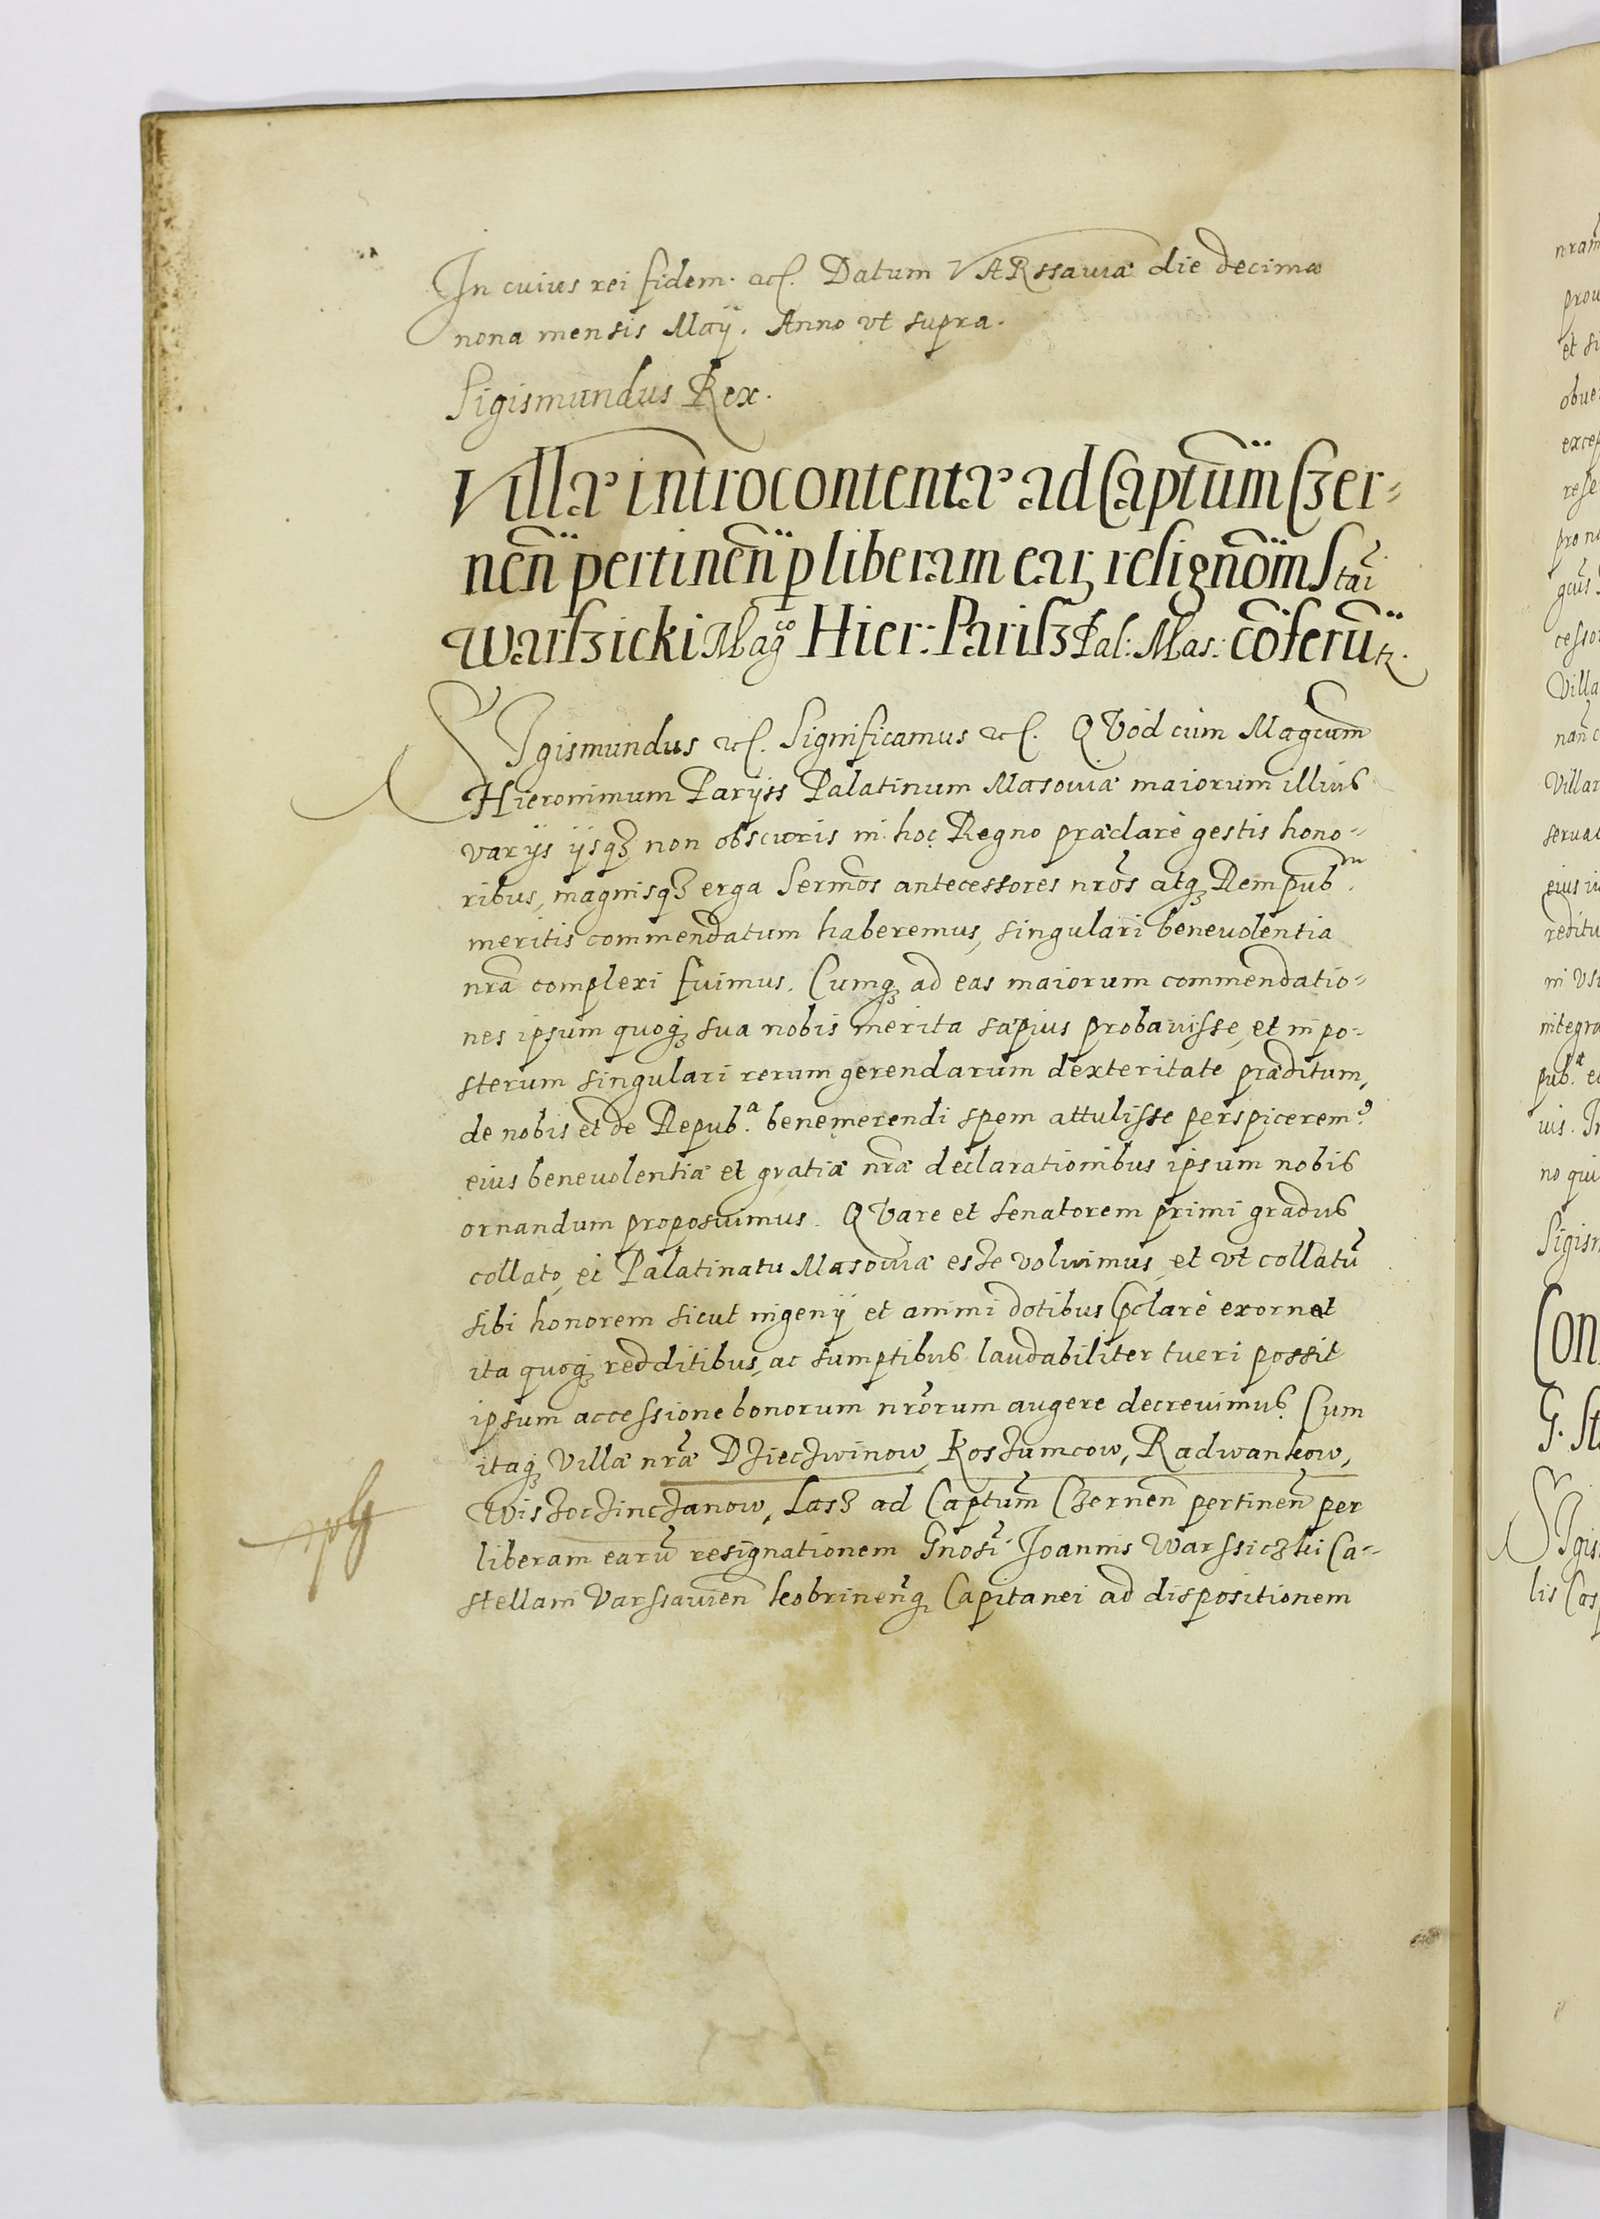 In cuius rei fidem. etc. Datum VARssauiæ die decima
nona mensis Maÿ. Anno vt supra.
Sigismundus Rex.
Villæ introcontentæ ad Captum̃ Czer-
nen̄ pertinen̄ p liberam eaꝝ resignõm S tãi
Warszicki Mag̃co Hier: Parisz Pal: Mas: cõferũꝶ.
SIgismundus etc. Significamus etc. QVòd cùm Magcum
Hieronimum Paryss Palatinum Masouiæ maiorum illius
varÿs ÿsqȝ non obscuris in hoc Regno præclarè gestis hono-
ribus, magnisqȝ erga Sermõs antecessores nrõs atqȝ Rempub.m
meritis commendatum haberemus, singulari beneuolentia
nrã complexi fuimus. Cumqȝ ad eas maiorum commendatio-
nes ipsum quoqȝ sua nobis merita sæpius probauisse, et in po-
sterum singulari rerum gerendarum dexteritate præditum,
de nobis et de Repub.a benemerendi spem attulisse perspicerem9
eius beneuolentiæ et gratiæ nræ declarationibus ipsum nobis
ornandum proposuimus. QVare et Senatorem primi gradus
collato, ei Palatinatu Masouiæ esse voluimus, et vt collatũ
sibi honorem sicut ingenÿ et animi dotibus pclarè exornat
ita quoqȝ redditibus, ac sumptibus laudabiliter tueri possit
ipsum accessione bonorum nrõrum augere decreuimus. Cum
itaqȝ Villæ nræ Dzieczwinow, Koszumcow, Radwankow,
Wiszoczinczanow, Lasz ad Captum̃ Czernen̄ pertinen̄ per
liberam earũ resignationem Gnosi Joannis Warssiczki Ca-
stellani Varssauien̄ kobrinen̄qȝ Capitanei ad dispositionem
nram
prou
et si
obue
excep
rese
pro no
gcus
cessor
Villa
nañ c
Villar
serua
eius iu
reditu
in vsu
integra
pub.æ et
uis. In
no qui
Sigism
Con
G. St
SIgis
lis Cas